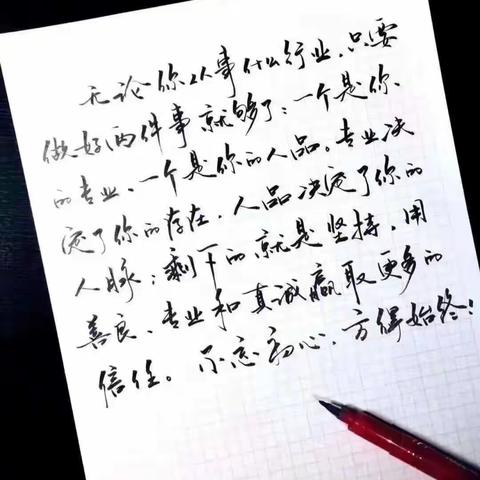 无论你从事什么行业，只要
做好两件事就够了：一个是你
的专业、一个是你的人品。专业决
定了你的存在，人品决定了你的
人脉；剩下的就是坚持，用
善良、专业和真诚赢取更多的
信任。不忘初心，方得始终！